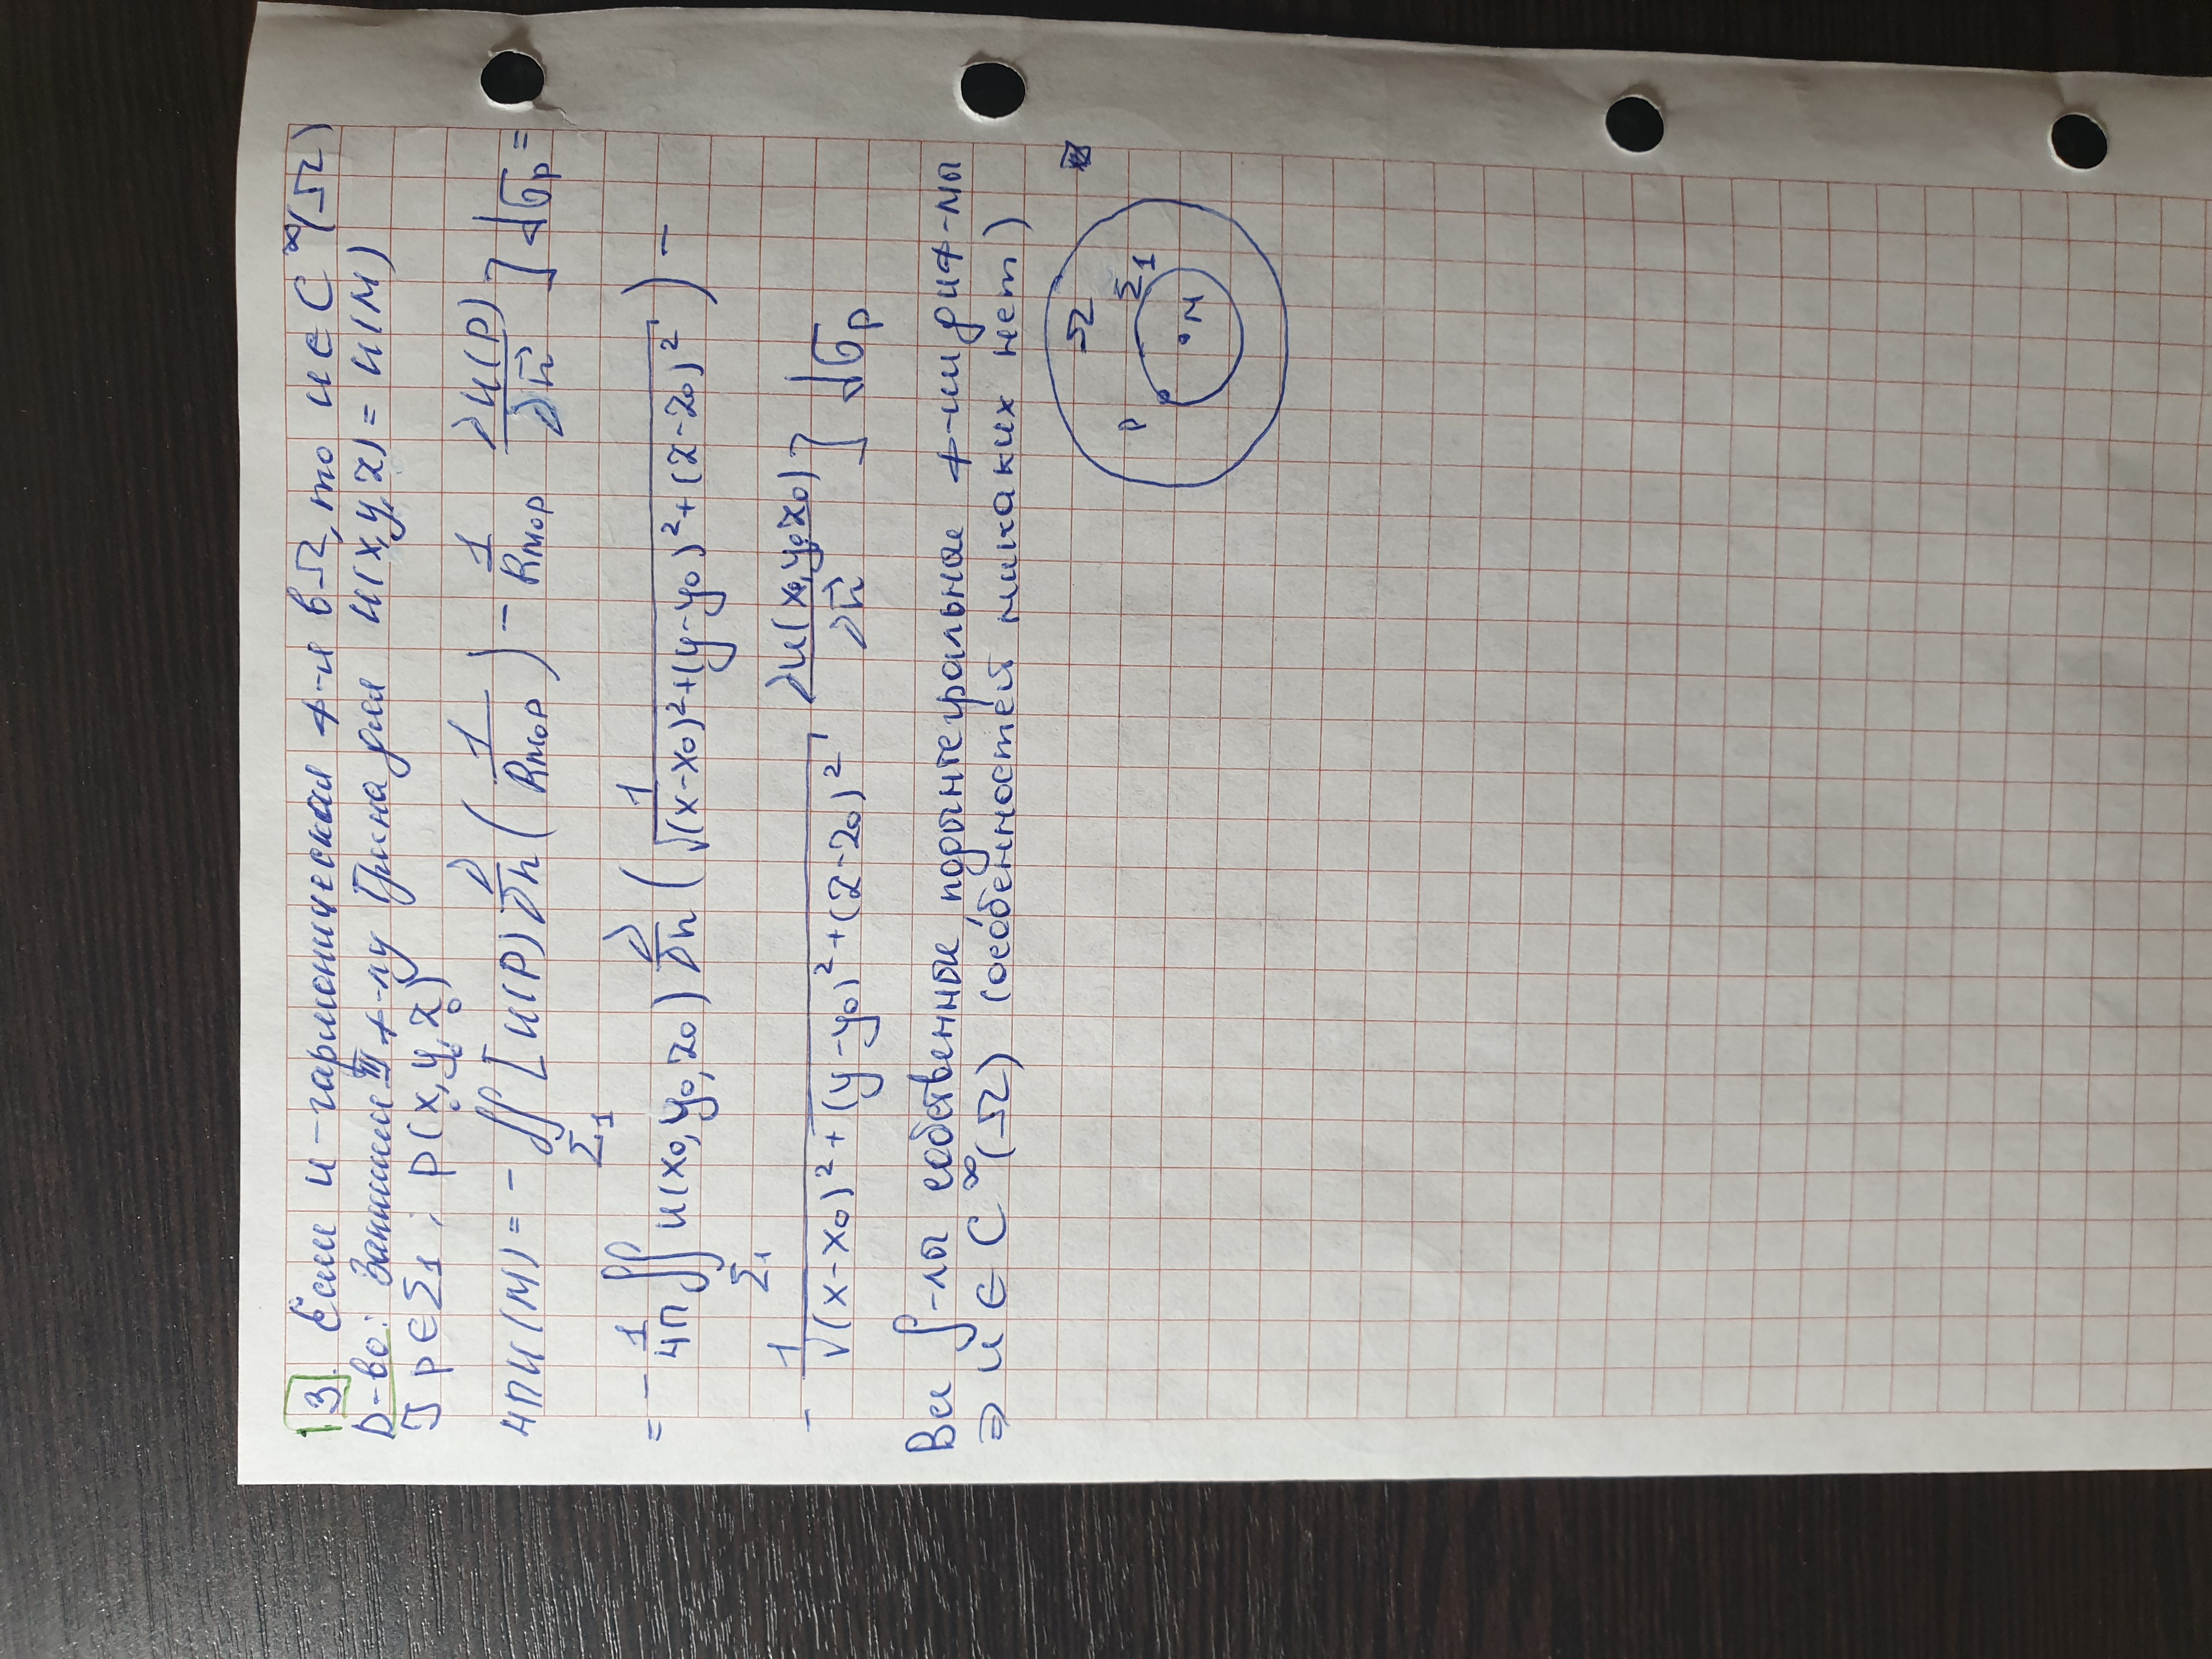 3. Если u – гармоническая ф-я в Ω, то u ∈ C^∞(Ω)
D-во: Запишем III ф-лу Грина для u(x,y,z) = u(M)
] P ∈ Σ₁ ; P(x₀,y₀,z₀)
4πu(M) = − ∬_{Σ₁} [u(P) ∂/∂n (1/R_{M₀P}) − 1/R_{M₀P} ∂u(P)/∂n⃗] dσ_P =
= − 1/4π ∬_{Σ₁} u(x₀,y₀,z₀) ∂/∂n (1/√((x−x₀)²+(y−y₀)²+(z−z₀)²)) −
− 1/√((x−x₀)²+(y−y₀)²+(z−z₀)²) ∂u(x₀,y₀,z₀)/∂n⃗] dσ_P
Все ∫-лы собственные подынтегральные ф-ии диф-мы
⇒ u ∈ C^∞(Ω) (особенностей никаких нет)
Ω
Σ₁
P
M